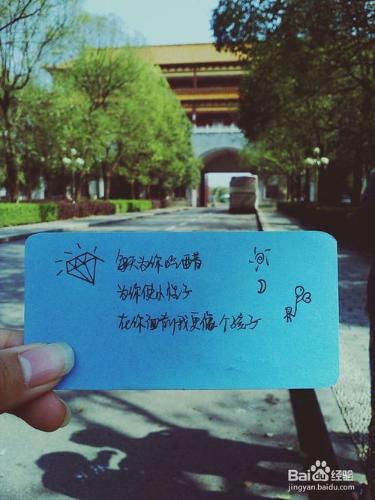 每天为你吃醋
为你使小性子
在你面前我更像个孩子
Bai百度 经验
jingyan.baidu.com